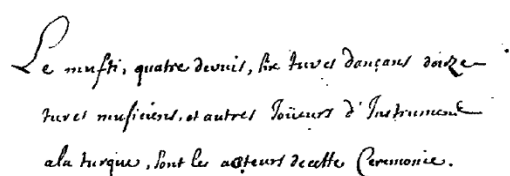 Le mufti, quatre dervis, six turcs dançans douze
turcs musiciens, et autres Joüeurs d'Instrument
a la turque, sont les acteurs de cette Ceremonie.